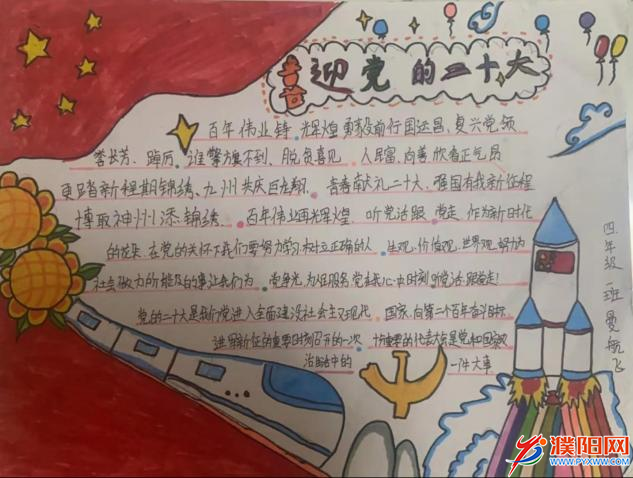 喜迎党的二十大
百年伟业铸辉煌 勇毅前行国运昌、复兴党领
誉长芳、踔厉 谁擎旗不到、脱贫喜见 人民富、向善欣看正气
更踏新程期锦绣、九州共庆巨龙翔 青春献礼二十大、强国有我新征程
博取神州添锦绣 百年伟业再光辉煌 听党话跟 党走 作为新时代
的 在党的关怀下我们要努力学 树立正确的人 生观、价值观、世界观 努力为
社会做力所能及的事让我们为 党争光 为人民服务 党在我心中时刻听党话跟党走!
党的二十大是我们党进入全面建设社会主义现代 国家、向第二个百年奋斗目标
进军新征的重要时刻召开的一次 十分重要的代表大会是党和国家
治 中的 一件大事
四年级一班 曼航飞
濮阳网
WWW.PYXWW.COM